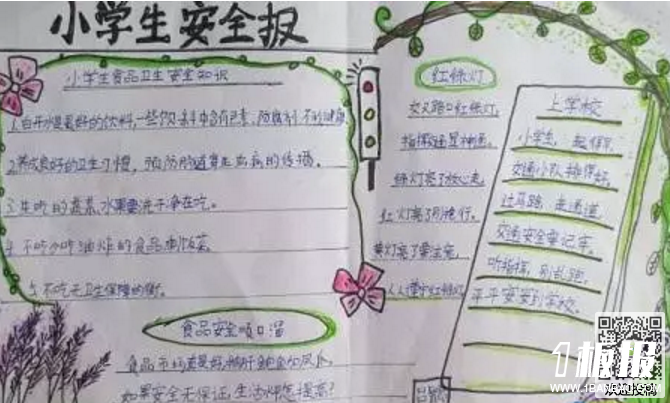 小学生安全报
小学生食品卫生安全知识
1.白开水是最好的饮料,一些饮料中含有色素、防腐剂不利健康
2.养成良好的卫生习惯,预防肠道寄生虫病的传播。
3.生吃的蔬菜、水果要洗干净在吃。
4.不吃少吃油炸的食品
5.不吃无卫生保障的
食品安全顺口溜
食品市场
如果安全无保证,生活怎提高?
红绿灯
交叉路口红绿灯,
指挥交通显神通。
绿灯亮了放心走,
红灯亮了别抢行。
黄灯亮了要注意,
人人遵守红绿灯
上学校
小学生,起得早
交通小队排得好。
过马路,走通道,
交通安全要记牢。
听指挥,别乱跑,
平平安安到学校。
1板报
WWW.1BANBAO.COM
欢迎投稿